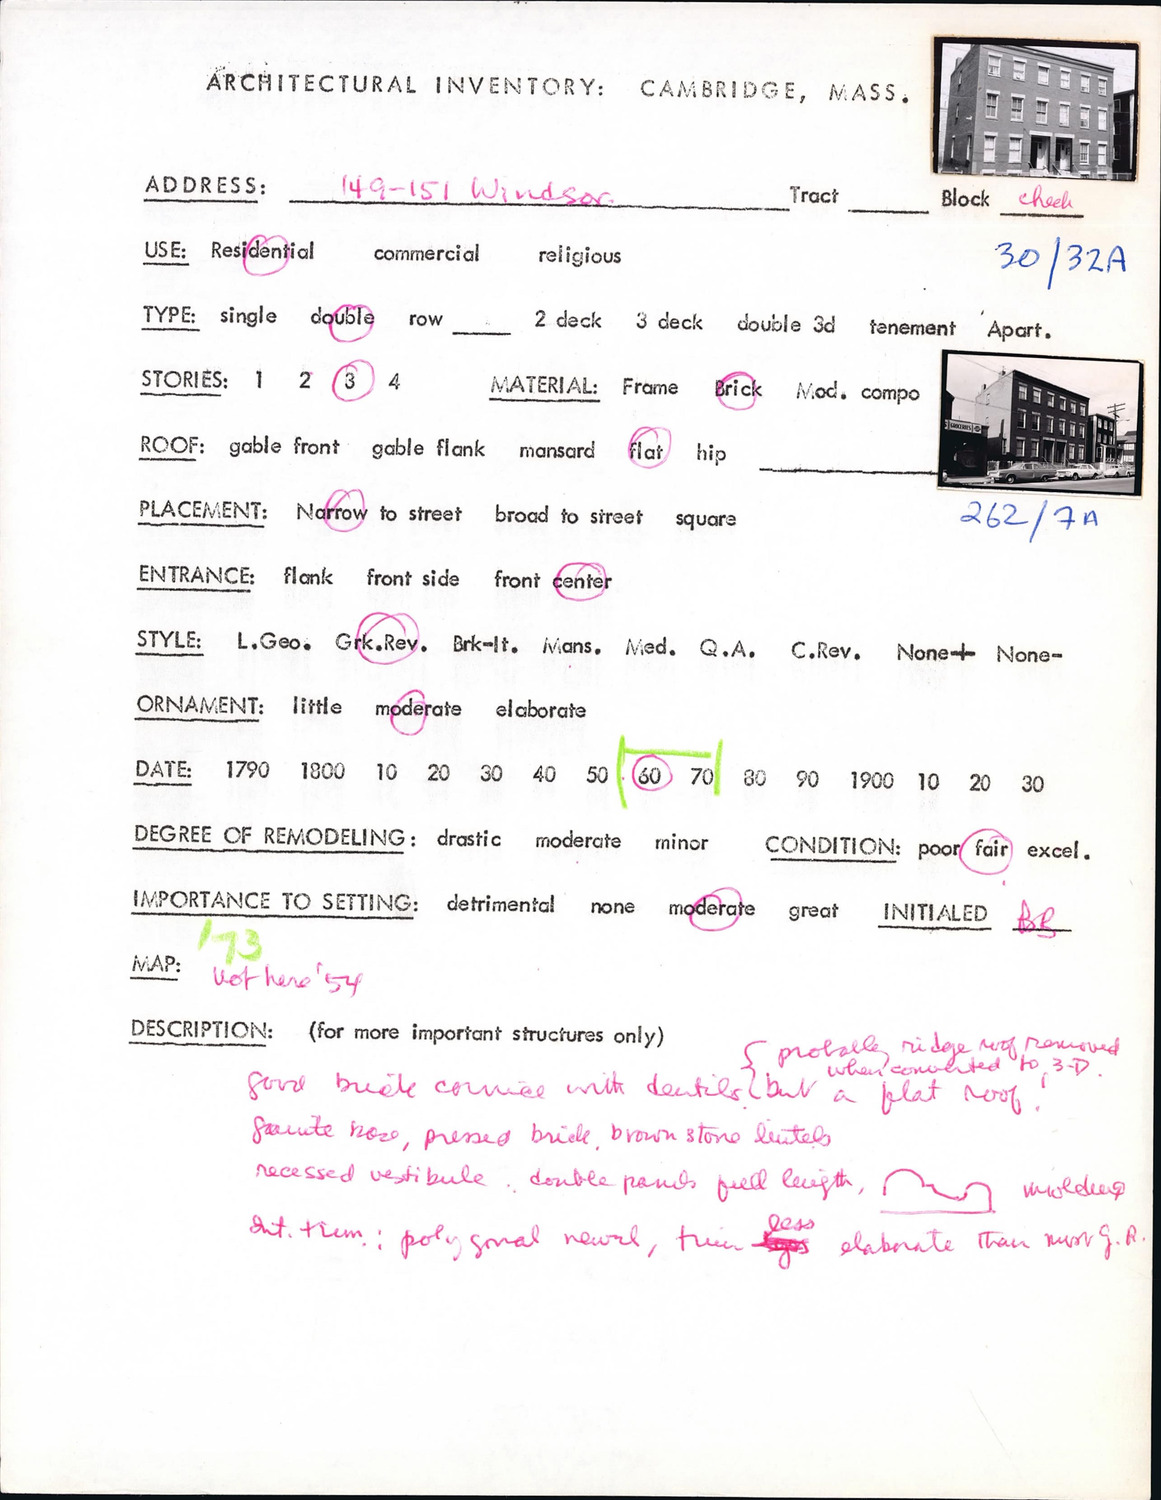 ARCHITECTURAL INVENTORY: CAMBRIDGE, MASS.
ADDRESS: 149-151 Windsor Tract ____ Block check
30/32A
USE: Residential commercial religious
TYPE: single double row ____ 2 deck 3 deck double 3d tenement Apart.
STORIES: 1 2 3 4 MATERIAL: Frame Brick Mod. compo
GROCERIES
ROOF: gable front gable flank mansard flat hip ____
PLACEMENT: Narrow to street broad to street square
262/7A
ENTRANCE: flank front side front center
STYLE: L.Geo. Grk.Rev. Brk-It. Mans. Med. Q.A. C.Rev. None+ None-
ORNAMENT: little moderate elaborate
DATE: 1790 1800 10 20 30 40 50 60 70 80 90 1900 10 20 30
DEGREE OF REMODELING: drastic moderate minor CONDITION: poor fair excel.
IMPORTANCE TO SETTING: detrimental none moderate great INITIALED BB
'73
MAP: Not here '54
DESCRIPTION: (for more important structures only)
probably ridge roof removed
when converted to 3-D.
good brick cornice with dentils, but a flat roof!
granite base, pressed brick, brownstone lintels
recessed vestibule. double panels full length, molding
Int. trim: polygonal newel, trim less elaborate than most G.R.